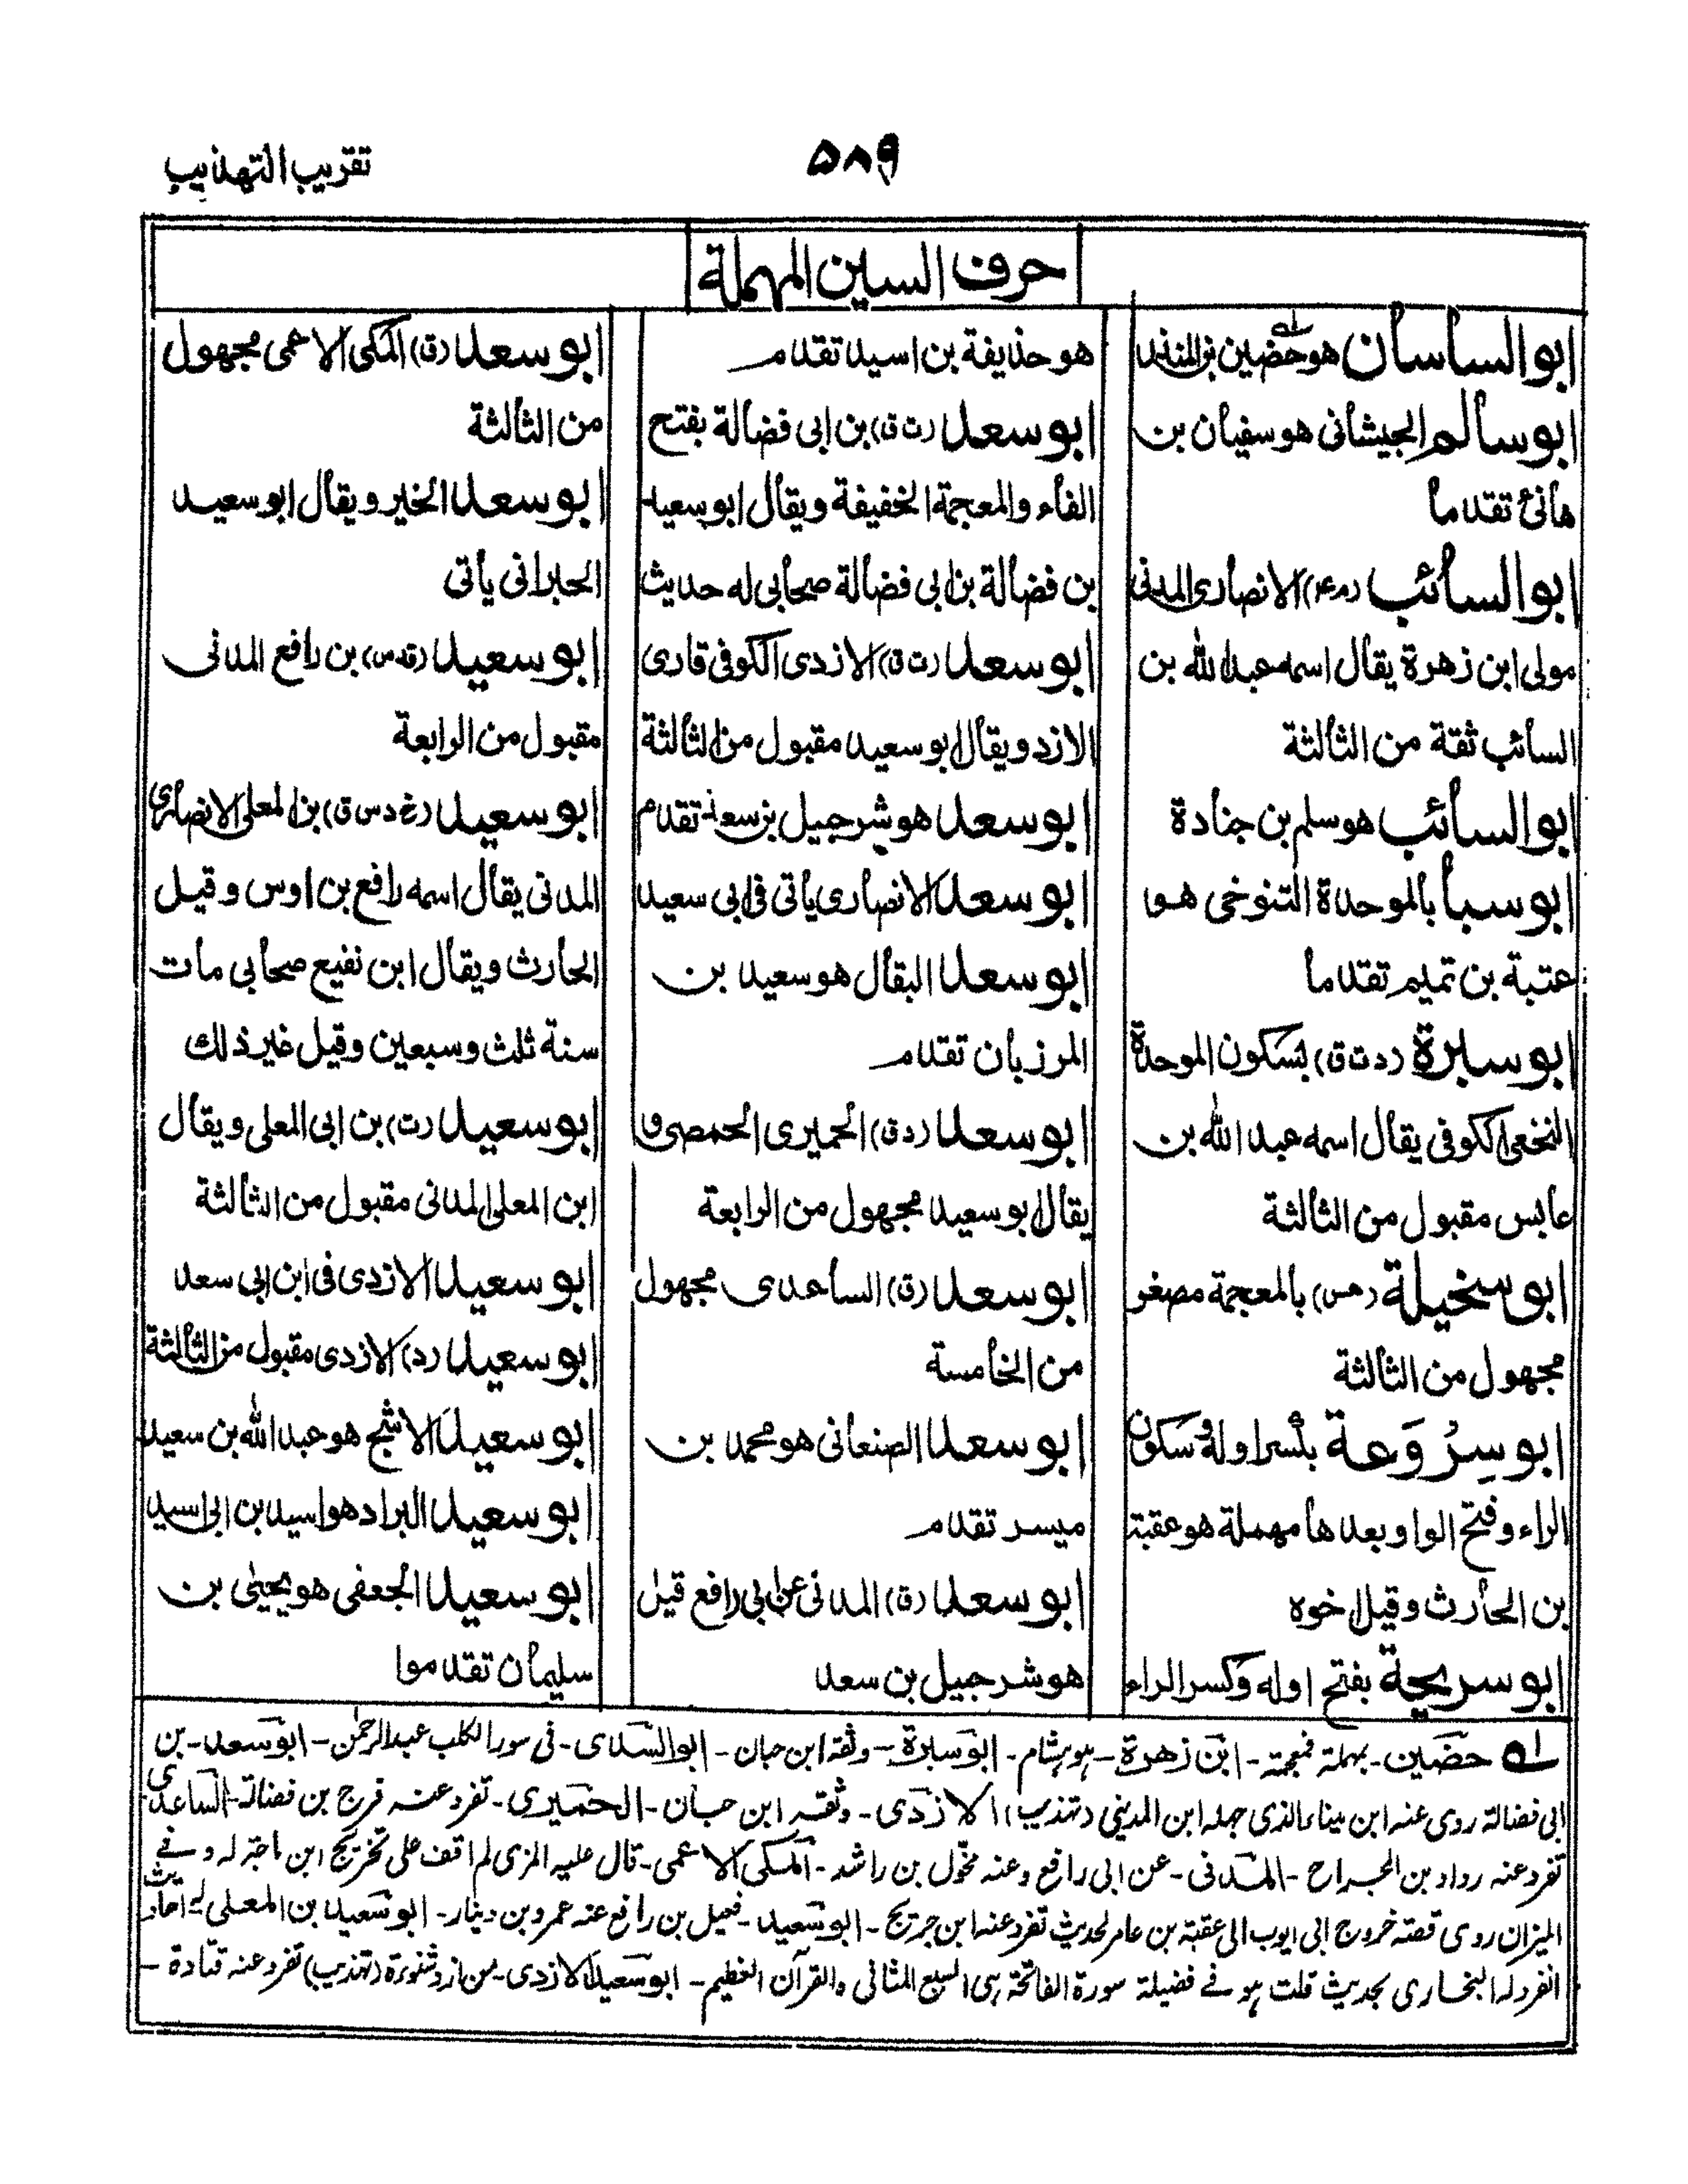 تقريب التهذيب
۵۸۹
حرف السين المهملة
ابو الساسان هو حضين بن المنذر
ابو سالم الجيشانى هو سفيان بن
هانئ تقدما
ابو السائب (م ع) الانصارى المدنى
مولى ابن زهرة يقال اسمه عبد الله بن
السائب ثقة من الثالثة
ابو السائب هو سلم بن جنادة
ابو سبأ بالموحدة التنوخى هو
عتبة بن تميم تقدما
ابو سبرة (د ت ق) بسكون الموحدة
النخعى الكوفى يقال اسمه عبد الله بن
عابس مقبول من الثالثة
ابو سخيلة (عس) بالمعجمة مصغر
مجهول من الثالثة
ابو سِرْوَعة بكسر اوله وسكون
الراء وفتح الواو بعدها مهملة هو عقبة
بن الحارث وقيل اخوه
ابو سريحة بفتح اوله وكسر الراء
هو حذيفة بن اسيد تقدم
ابو سعد (ت ق) بن ابى فضالة بفتح
الفاء والمعجمة الخفيفة ويقال ابو سعيد
بن فضالة بن ابى فضالة صحابى له حديث
ابو سعد (ت ق) الازدى الكوفى قارى
الازد ويقال ابو سعيد مقبول من الثالثة
ابو سعد هو شرحبيل بن سعد تقدم
ابو سعد الانصارى ياتى فى ابى سعيد
ابو سعد البقال هو سعيد بن
المرزبان تقدم
ابو سعد (د ق) الحميرى الحمصى و
يقال ابو سعيد مجهول من الرابعة
ابو سعد (ق) الساعدى مجهول
من الخامسة
ابو سعد الصنعانى هو محمد بن
ميسر تقدم
ابو سعد (ق) المدنى عن ابى رافع قيل
هو شرحبيل بن سعد
ابو سعد (ق) المكى الاعمى مجهول
من الثالثة
ابو سعد الخير ويقال ابو سعيد
الحبرانى يأتى
ابو سعيد (قد س) بن رافع المدنى
مقبول من الرابعة
ابو سعيد (خ د س ق) بن المعلى الانصارى
المدنى يقال اسمه رافع بن اوس وقيل
الحارث ويقال ابن نفيع صحابى مات
سنة ثلث وسبعين وقيل غير ذلك
ابو سعيد (ت) بن ابى المعلى ويقال
ابن المعلى المدنى مقبول من الثالثة
ابو سعيد الازدى فى ابن ابى سعد
ابو سعيد (د) الازدى مقبول من الثالثة
ابو سعيد الاشج هو عبد الله بن سعيد
ابو سعيد البراد هو اسيد بن ابى اسيد
ابو سعيد الجعفى هو يحيى بن
سليمان تقدموا
له حضين - بمهملة فمعجمة - ابن زهرة - هو هشام - ابو سبرة - وثقه ابن حبان - ابو السدى - فى سور الكلب عبد الرحمن - ابو سعد - بن
ابى فضالة روى عنه ابن ميناء الذى جهله ابن المدينى (تهذيب) الازدى - وثقه ابن حبان - الحميرى - تفرد عنه فرج بن فضالة - الساعدى
تفرد عنه رواد بن الجراح - المدنى - عن ابى رافع وعنه مخول بن راشد - المكى الاعمى - قال عليه المزى لم اقف على تخريج ابن ماجة له و فى
الميزان روى قصة خروج ابى ايوب الى عقبة بن عامر لحديث تفرد عنه ابن جريج - ابو سعيد - بن رافع عنه عمرو بن دينار - ابو سعيد بن المعلى له احاديث
انفرد له البخارى بحديث قلت هو فى فضيلة سورة الفاتحة هى السبع المثانى والقرآن العظيم - ابو سعيد الازدى - من ازد شنوءة (تهذيب) تفرد عنه قتادة -